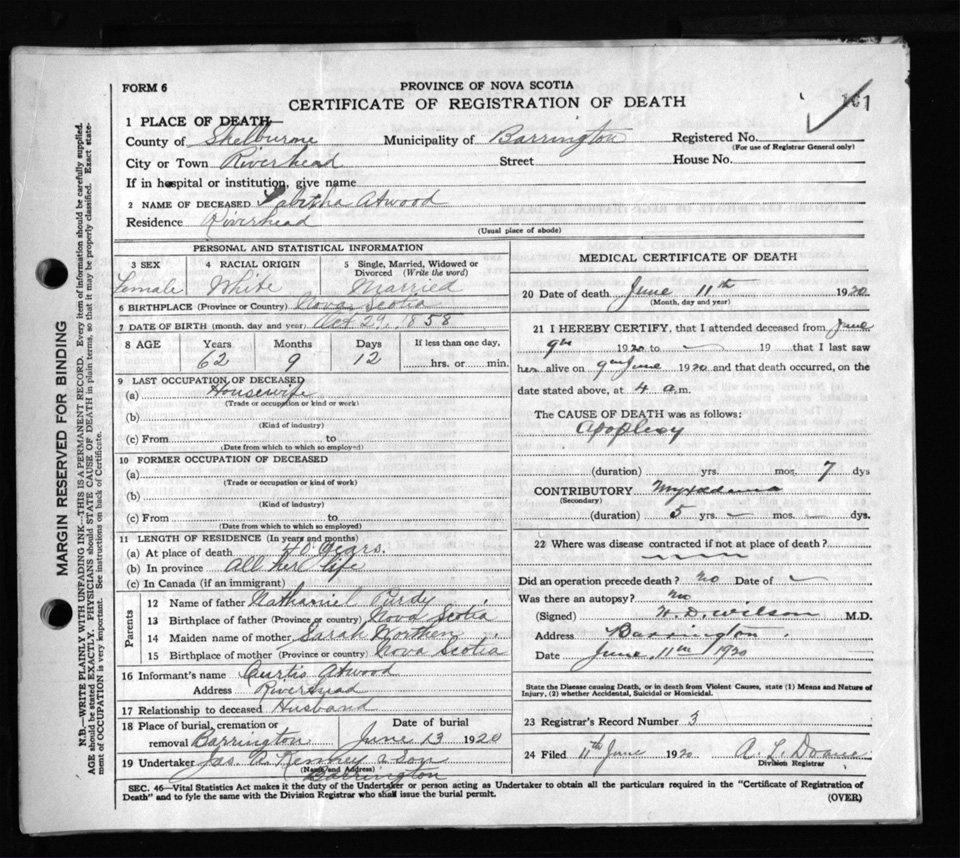 FORM 6
PROVINCE OF NOVA SCOTIA
CERTIFICATE OF REGISTRATION OF DEATH
161
1 PLACE OF DEATH—
County of Shelburne Municipality of Barrington Registered No.
(For use of Registrar General only)
City or Town Riverhead Street House No.
If in hospital or institution, give name
2 NAME OF DECEASED Tabitha Atwood
Residence Riverhead
(Usual place of abode)
PERSONAL AND STATISTICAL INFORMATION
3 SEX 4 RACIAL ORIGIN 5 Single, Married, Widowed or Divorced (Write the word)
Female White Married
6 BIRTHPLACE (Province or Country) Nova Scotia
7 DATE OF BIRTH (month, day and year) 29, 1858
8 AGE Years Months Days If less than one day,
62 9 12 hrs. or min.
9 LAST OCCUPATION OF DECEASED
(a) Housewife
(Trade or occupation or kind or work)
(b)
(Kind of industry)
(c) From to
(Date from which to which so employed)
10 FORMER OCCUPATION OF DECEASED
(a)
(Trade or occupation or kind of work)
(b)
(Kind of industry)
(c) From to
(Date from which to which so employed)
11 LENGTH OF RESIDENCE (In years and months)
(a) At place of death 40 years.
(b) In province all her life
(c) In Canada (if an immigrant)
Parents
12 Name of father Nathaniel Purdy
13 Birthplace of father (Province or country) Nova Scotia
14 Maiden name of mother Sarah Northen
15 Birthplace of mother (Province or country) Nova Scotia
16 Informant's name Curtis Atwood
Address Riverhead
17 Relationship to deceased Husband
18 Place of burial, cremation or removal Barrington Date of burial June 13 1920
19 Undertaker Jas A. Kenney & son
(Name and Address)
Barrington
MEDICAL CERTIFICATE OF DEATH
20 Date of death June 11th 1920
(Month, day and year)
21 I HEREBY CERTIFY, that I attended deceased from June
9th 1920 to — 19 that I last saw
her alive on 9th June 1920 and that death occurred, on the
date stated above, at 4 a.m.
The CAUSE OF DEATH was as follows:
Apoplexy
(duration) yrs. mos. 7 dys
CONTRIBUTORY Myxedema
(Secondary)
(duration) 5 yrs. — mos. dys.
22 Where was disease contracted if not at place of death?
Did an operation precede death? no Date of —
Was there an autopsy? no
(Signed) H. D. Wilson M.D.
Address Barrington.
Date June 11th 1920
State the Disease causing Death, or in death from Violent Causes, state (1) Means and Nature of
Injury, (2) whether Accidental, Suicidal or Homicidal.
23 Registrar's Record Number 3
24 Filed 11th June 1920 A. L. Doane
Division Registrar
SEC. 46—Vital Statistics Act makes it the duty of the Undertaker or person acting as Undertaker to obtain all the particulars required in the "Certificate of Registration of
Death" and to fyle the same with the Division Registrar who shall issue the burial permit.
(OVER)
MARGIN RESERVED FOR BINDING
N.B.—WRITE PLAINLY WITH UNFADING INK—THIS IS A PERMANENT RECORD. Every item of information should be carefully supplied.
AGE should be stated EXACTLY. PHYSICIANS should STATE CAUSE OF DEATH in plain terms, so that it may be properly classified. Exact state-
ment of OCCUPATION is very important. See instructions on back of Certificate.